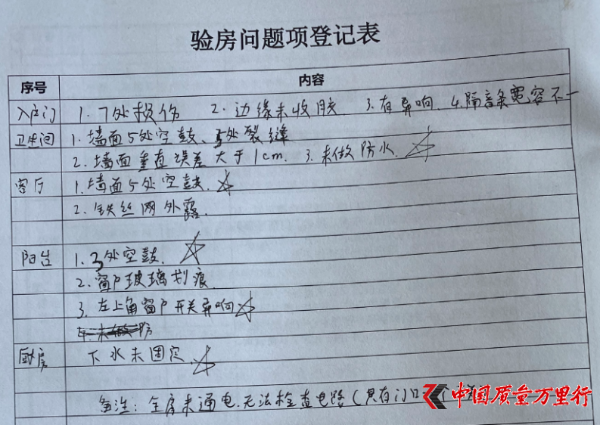 验房问题项登记表
序号 内容
入户门 1. 7处损伤 2. 边缘未收胶 3. 有异响 4. 隔音条宽窄不一
卫生间 1. 墙面5处空鼓、5处裂缝
2. 墙面垂直误差大于1cm. 3. 未做防水
客厅 1. 墙面5处空鼓
2. 铁丝网外露.
阳台 1. 3处空鼓.
2. 窗户玻璃划痕
3. 左上角窗户开关异响
厨房 下水未固定
备注: 全房未通电.无法检查电路(只有门口
中国质量万里行